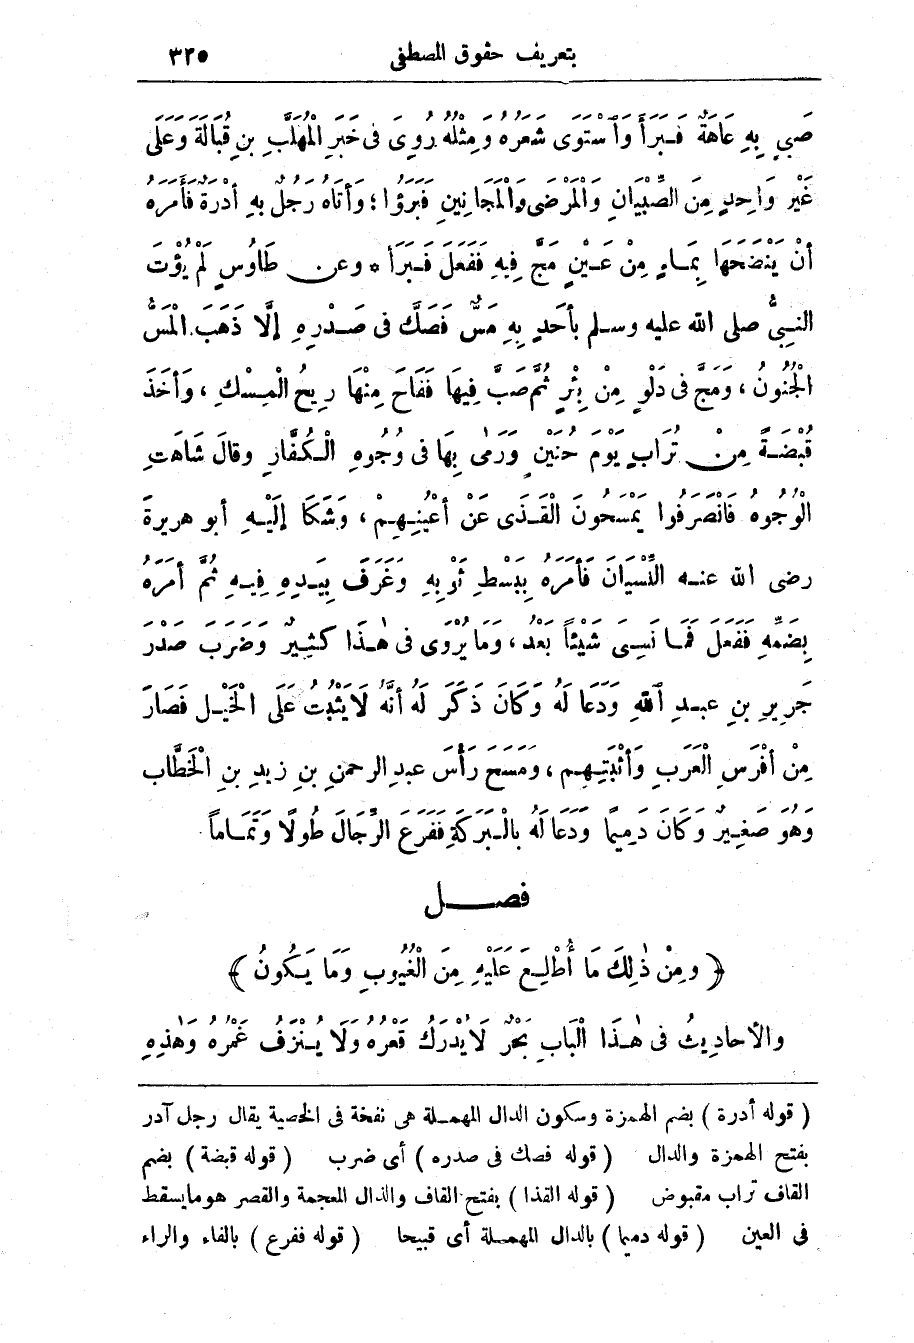 بتعريف حقوق المصطفى ٣٢٥
صَبِيٍ بِهِ عَاهَةٌ فَبَرَأَ وَاسْتَوَى شَعَرُهُ وَمِثْلُهُ رُوِىَ فى خَبَرِ الْمُهَلَّبِ بنِ قُبَالَةَ وَعَلَى
غَيْرِ وَاحِدٍ مِنَ الصِّبْيَانِ وَالْمَرْضَى وَالْمَجَانِينِ فَبَرَؤُا ؛ وَأَتَاهُ رَجُلٌ بِهِ أُدْرَةٌ فَأَمَرَهُ
أَنْ يَنْضَحَهَا بِمَاءٍ مِنْ عَيْنٍ مَجَّ فِيهِ فَفَعَلَ فَبَرَأَ * وعن طَاوُسٍ لَمْ يُؤْتَ
النبِىُّ صلى الله عليه وسلم بأَحَدٍ بِهِ مَسٌّ فَصَكَّ فى صَدْرِهِ إِلَّا ذَهَبَ . الْمَسُّ
الْجُنُونُ ، وَمَجَّ فى دَلْوٍ مِنْ بِئْرٍ ثُمَّ صَبَّ فِيهَا فَفَاحَ مِنْهَا رِيحُ الْمِسْكِ ، وَأَخَذَ
قُبْضَةً مِنْ تُرَابٍ يَوْمَ حُنَيْنٍ وَرَمَى بِهَا فى وُجُوهِ الْكُفَّارِ وقالَ شَاهَتِ
الْوُجُوهُ فَانْصَرَفُوا يَمْسَحُونَ الْقَذَى عَنْ أَعْيُنِهِمْ ، وَشَكَا إِلَيْهِ أبو هريرةَ
رضى الله عنه النِّسْيَانَ فَأَمَرَهُ بِبَسْطِ ثَوْبِهِ وَغَرَفَ بِيَدِهِ فِيهِ ثُمَّ أَمَرَهُ
بِضَمِّهِ فَفَعَلَ فَمَا نَسِىَ شَيْئًا بَعْدُ ، وَمَا يُرْوَى فى هٰذَا كَثِيرٌ وَضَرَبَ صَدْرَ
جَرِيرِ بنِ عبدِ اللهِ وَدَعَا لَهُ وَكَانَ ذَكَرَ لَهُ أَنَّهُ لَا يَثْبُتُ عَلَى الْخَيْلِ فَصَارَ
مِنْ أَفْرَسِ الْعَرَبِ وَأَثْبَتِهِم ، وَمَسَحَ رَأْسَ عبدِ الرحمنِ بنِ زيدِ بنِ الْخَطَّابِ
وَهُوَ صَغِيرٌ وَكَانَ دَمِيمًا وَدَعَا لَهُ بالْبَرَكَةِ فَفَرَعَ الرِّجَالَ طُولًا وَتَمَامًا .
فصل
﴿ وَمِنْ ذٰلِكَ مَا أُطْلِعَ عَلَيْهِ مِنَ الْغُيُوبِ وَمَا يَكُونُ ﴾
والأحادِيثُ فى هٰذَا الْبَابِ بَحْرٌ لَا يُدْرَكُ قَعْرُهُ وَلَا يُنْزَفُ غَمْرُهُ وَهٰذِهِ
( قوله أدرة ) بضم الهمزة وسكون الدال المهملة هى نفخة فى الخصية يقال رجل آدر
بفتح الهمزة والدال ( قوله فصك فى صدره ) أى ضرب ( قوله قبضة ) بضم
القاف تراب مقبوض ( قوله القذا ) بفتح القاف والذال المعجمة والقصر هو ما يسقط
فى العين ( قوله دميما ) بالدال المهملة أى قبيحا ( قوله ففرع ) بالفاء والراء